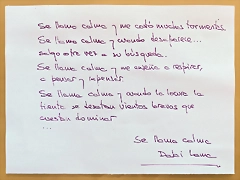 Se llama calma y me costó muchas tormentas
Se llama calma y cuando desaparece...
salgo otra vez a su búsqueda.
Se llama calma y me enseña a respirar,
a pensar y repensar.
Se llama calma y cuando la locura la
tienta se desatan vientos bravos que
cuestan dominar.
...
Se llama calma
Dalai Lama